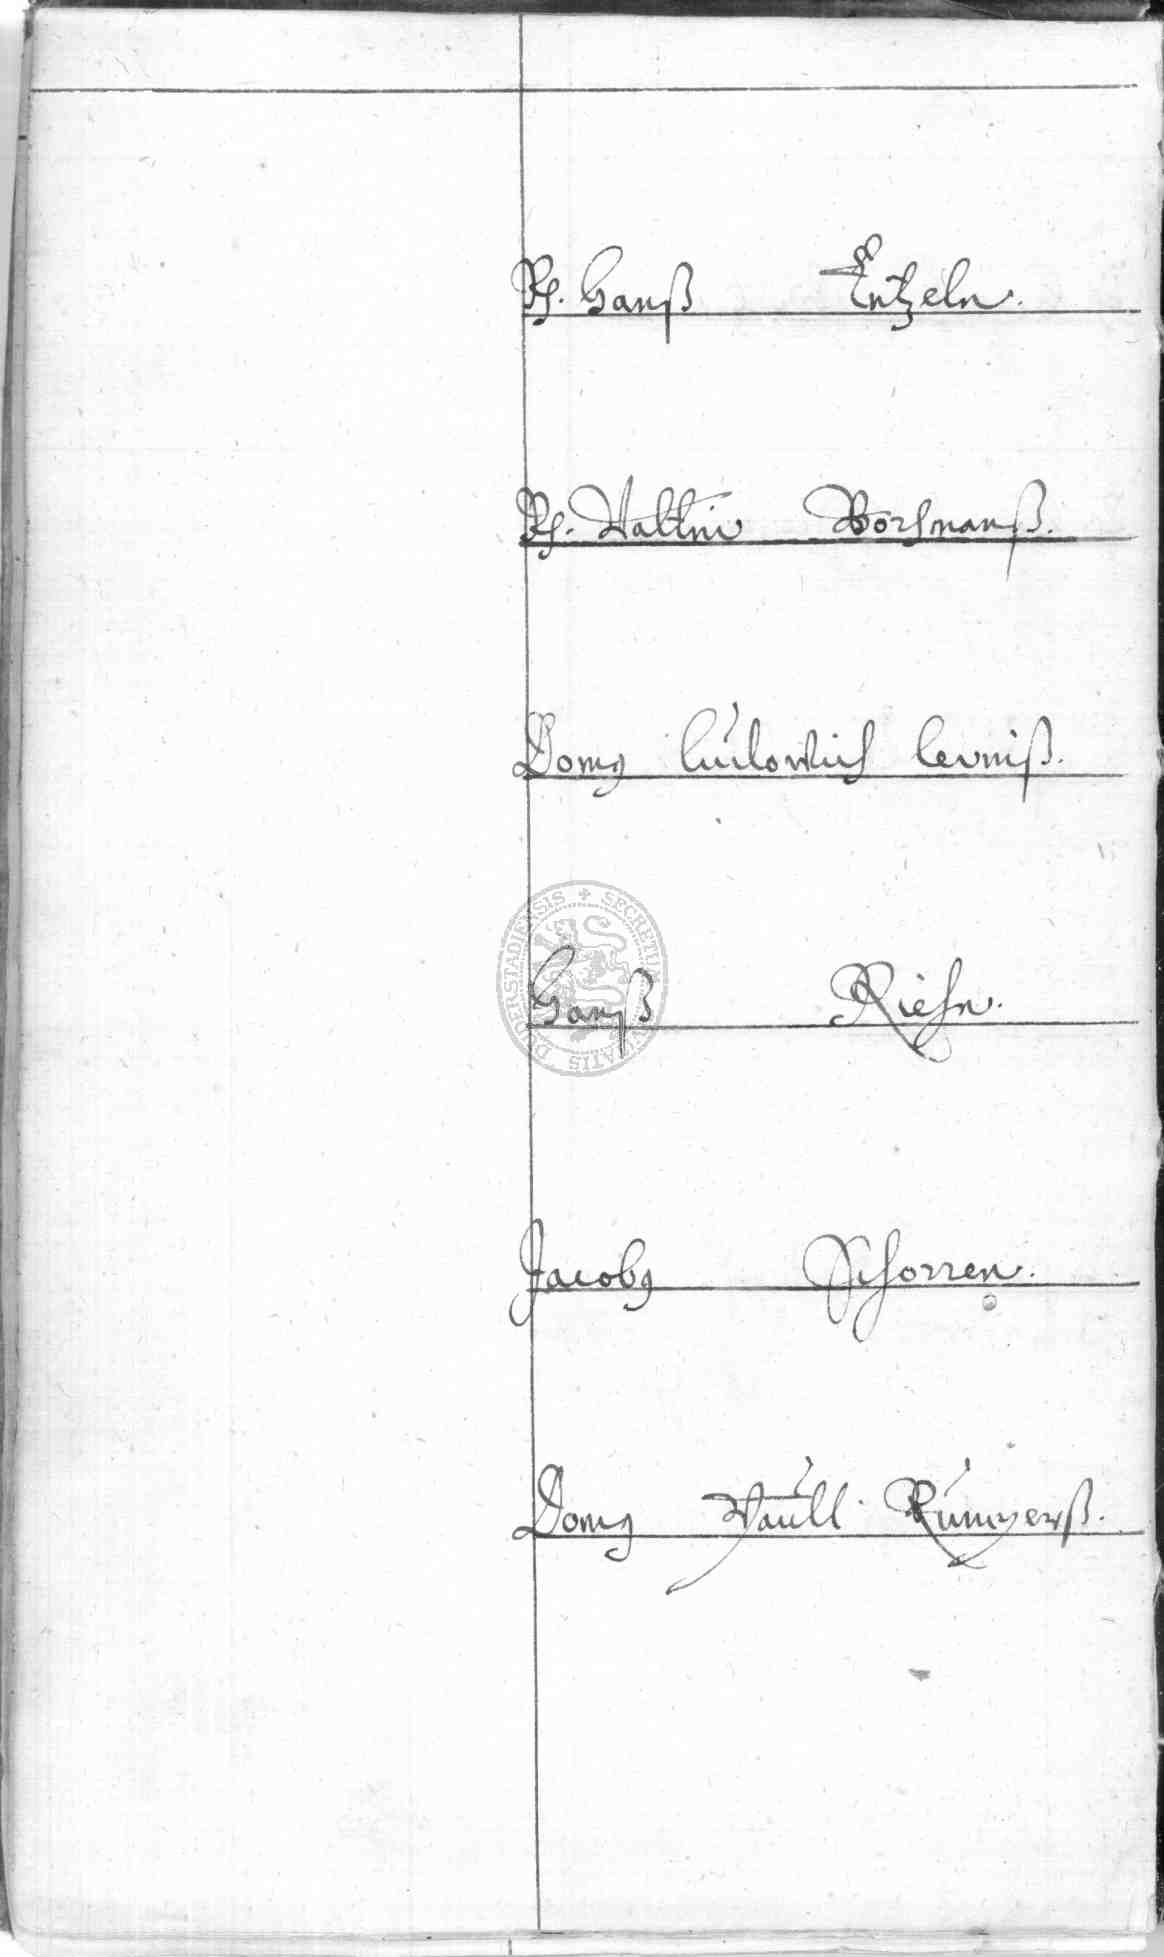 Rh. Hanß Entzeln.
Rh. Valtin Borchmanß.
Domus Ludowich Levniß.
Hanß Riehn.
Jacobus Schorren.
Domus Paull
SECRETUM CIVITATIS DUDERSTADIENSIS